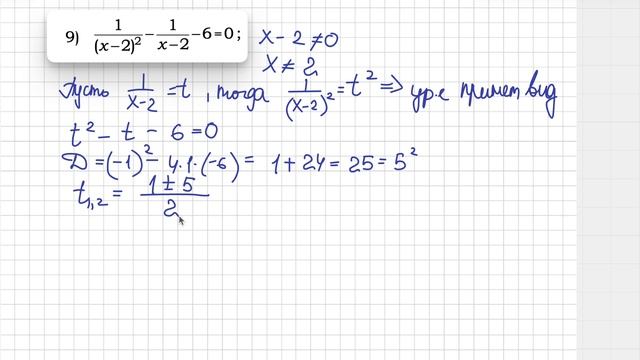 9) 1/(x−2)² − 1/(x−2) − 6 = 0;
x − 2 ≠ 0
x ≠ 2
Пусть 1/(x−2) = t, тогда 1/(x−2)² = t² => ур.е примет вид
t² − t − 6 = 0
D = (−1)² − 4·1·(−6) = 1 + 24 = 25 = 5²
t₁,₂ = (1 ± 5)/2